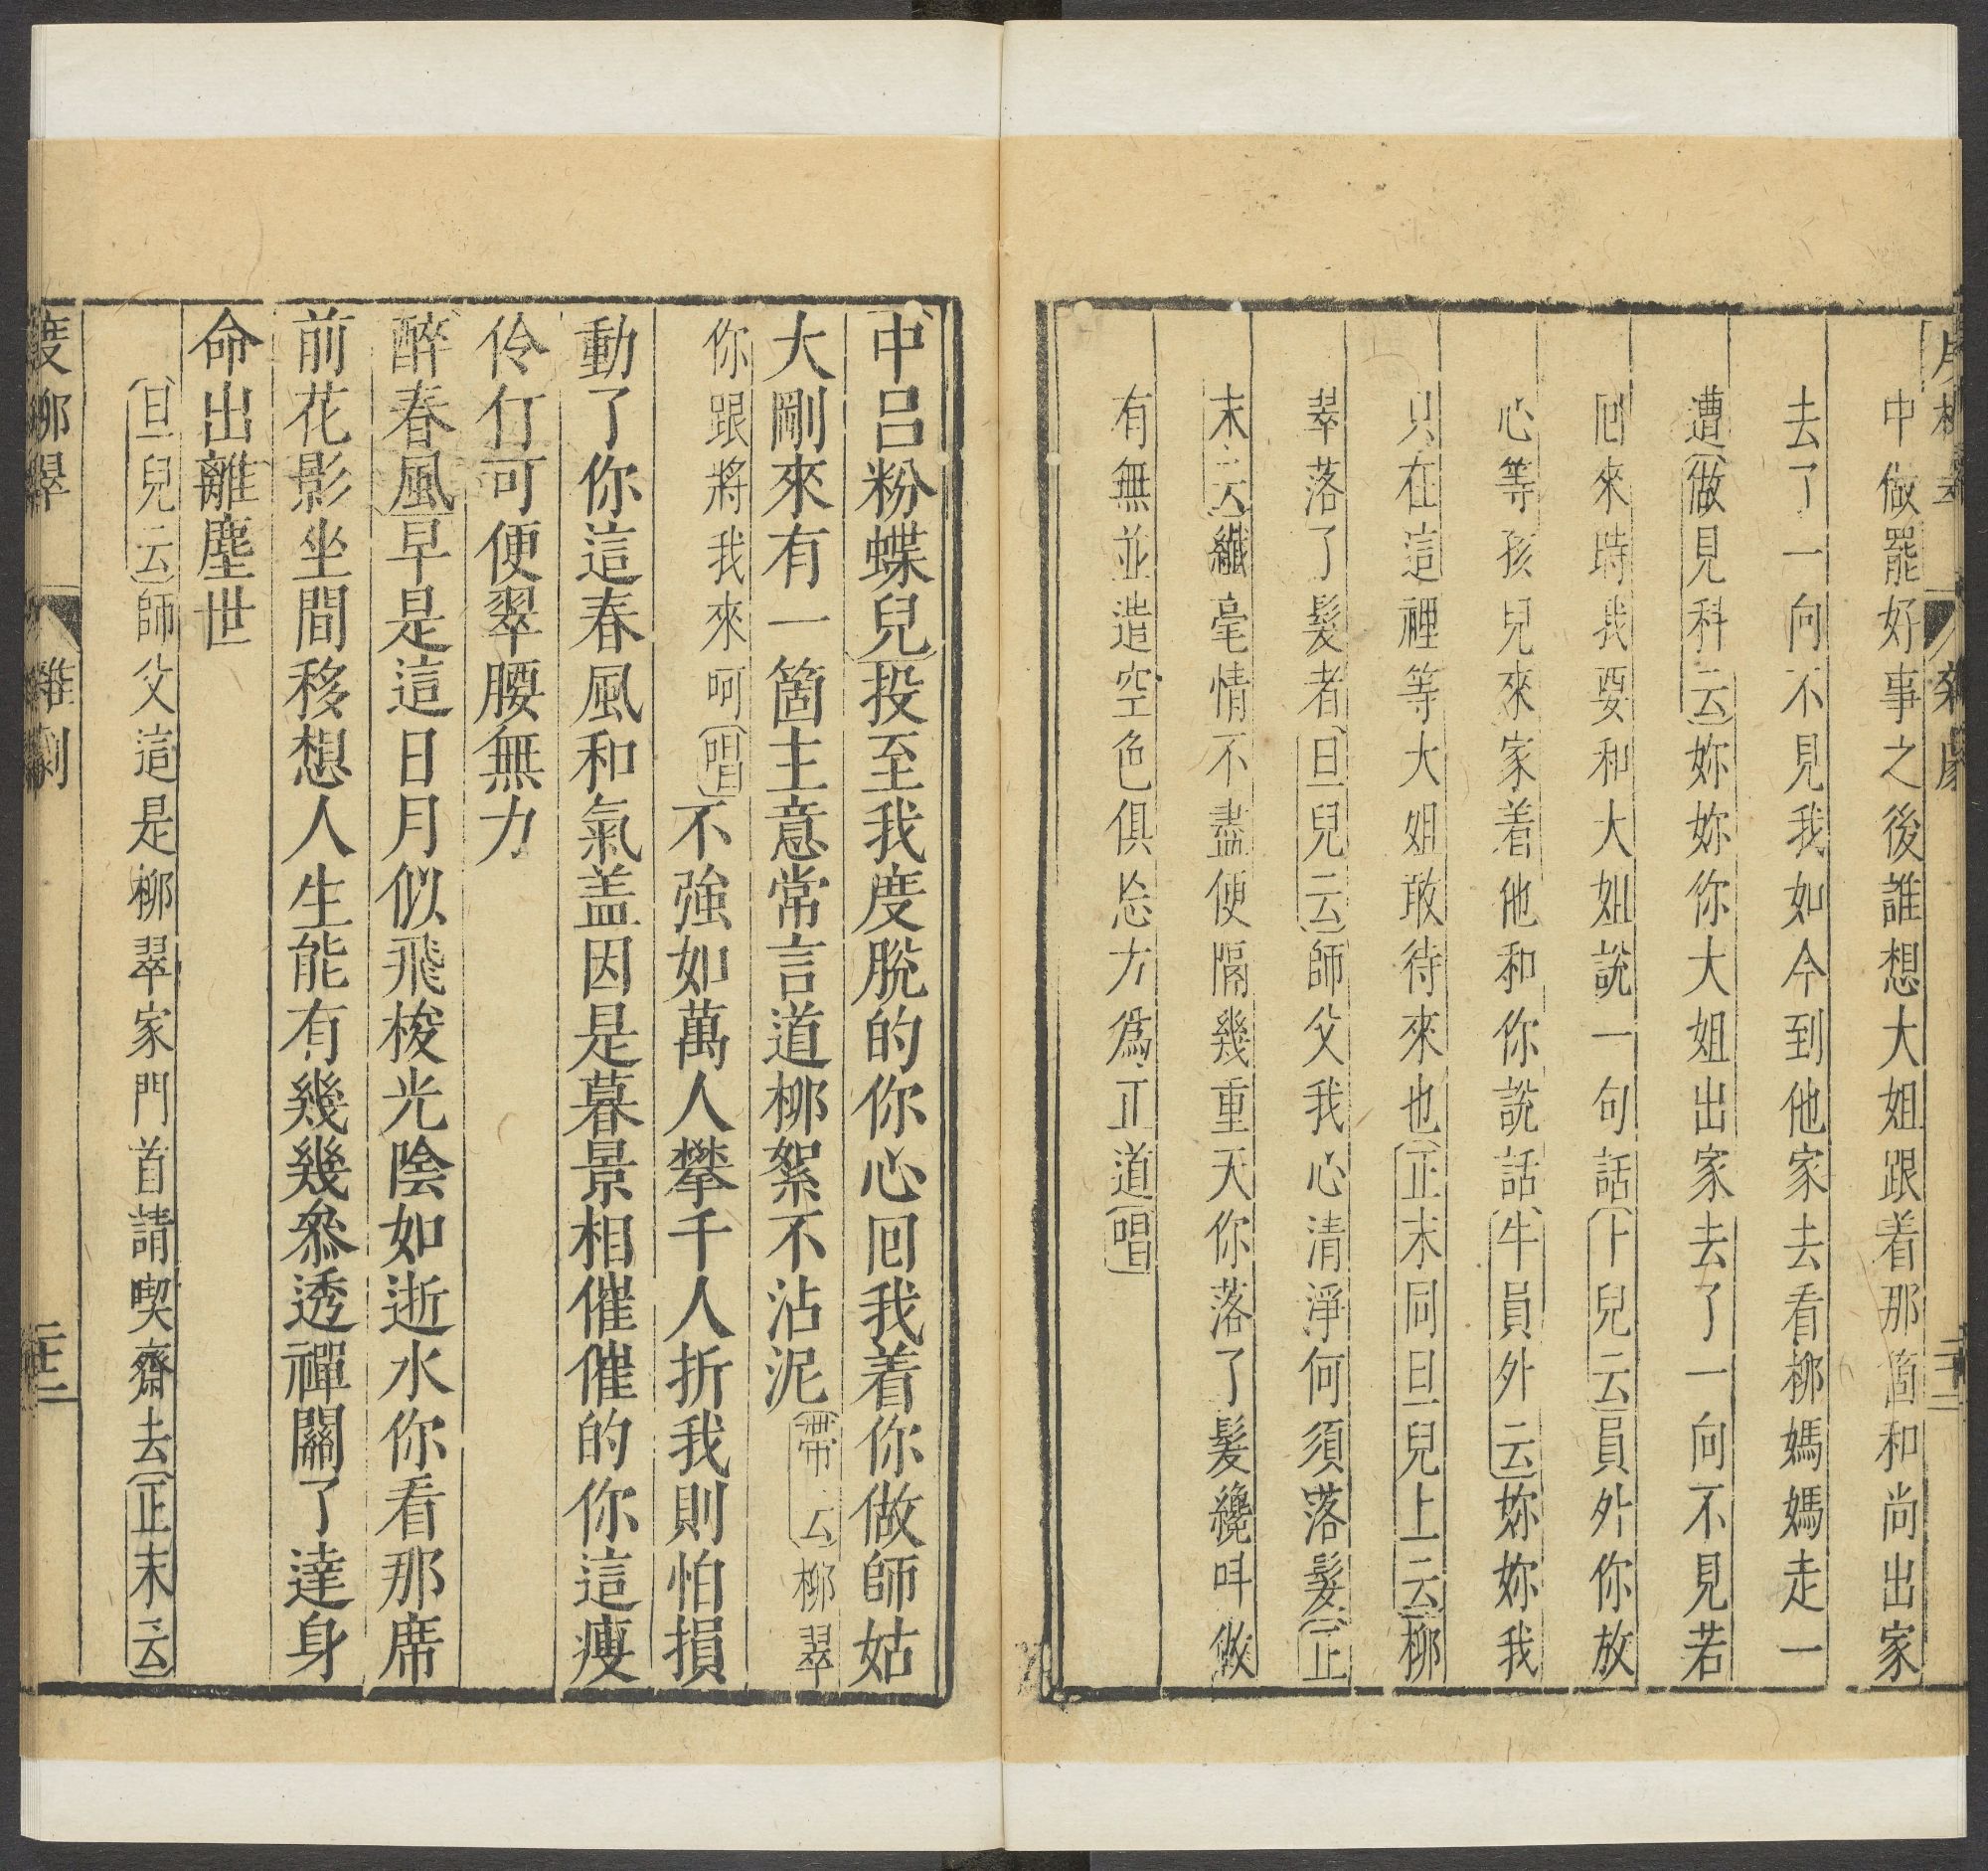 中做罷好事之後誰想大姐跟着那箇和尚出家
去了一向不見我如今到他家去看柳媽媽走一
遭做見科云妳妳你大姐出家去了一向不見若
囘來時我要和大姐說一句話卜兒云員外你放
心等孩兒來家着他和你說話牛員外云妳妳我
只在這裡等大姐敢待來也正末同旦兒上云柳
翠落了髮者旦兒云師父我心清淨何須落髮正
末云纖毫情不盡便隔幾重天你落了髮纔呌做
有無並遣空色俱忘方爲正道唱
中呂粉蝶兒投至我度脫的你心囘我着你做師姑
大剛來有一箇主意常言道柳絮不沾泥帶云柳翠
你跟將我來呵唱不強如萬人攀千人折我則怕損
動了你這春風和氣盖因是暮景相催催的你這瘦
伶仃可便翠腰無力
醉春風早是這日月似飛梭光陰如逝水你看那席
前花影坐間移想人生能有幾幾叅透禪關了達身
命出離塵世
旦兒云師父這是柳翠家門首請喫齋去正末云
度柳翠 雜劇